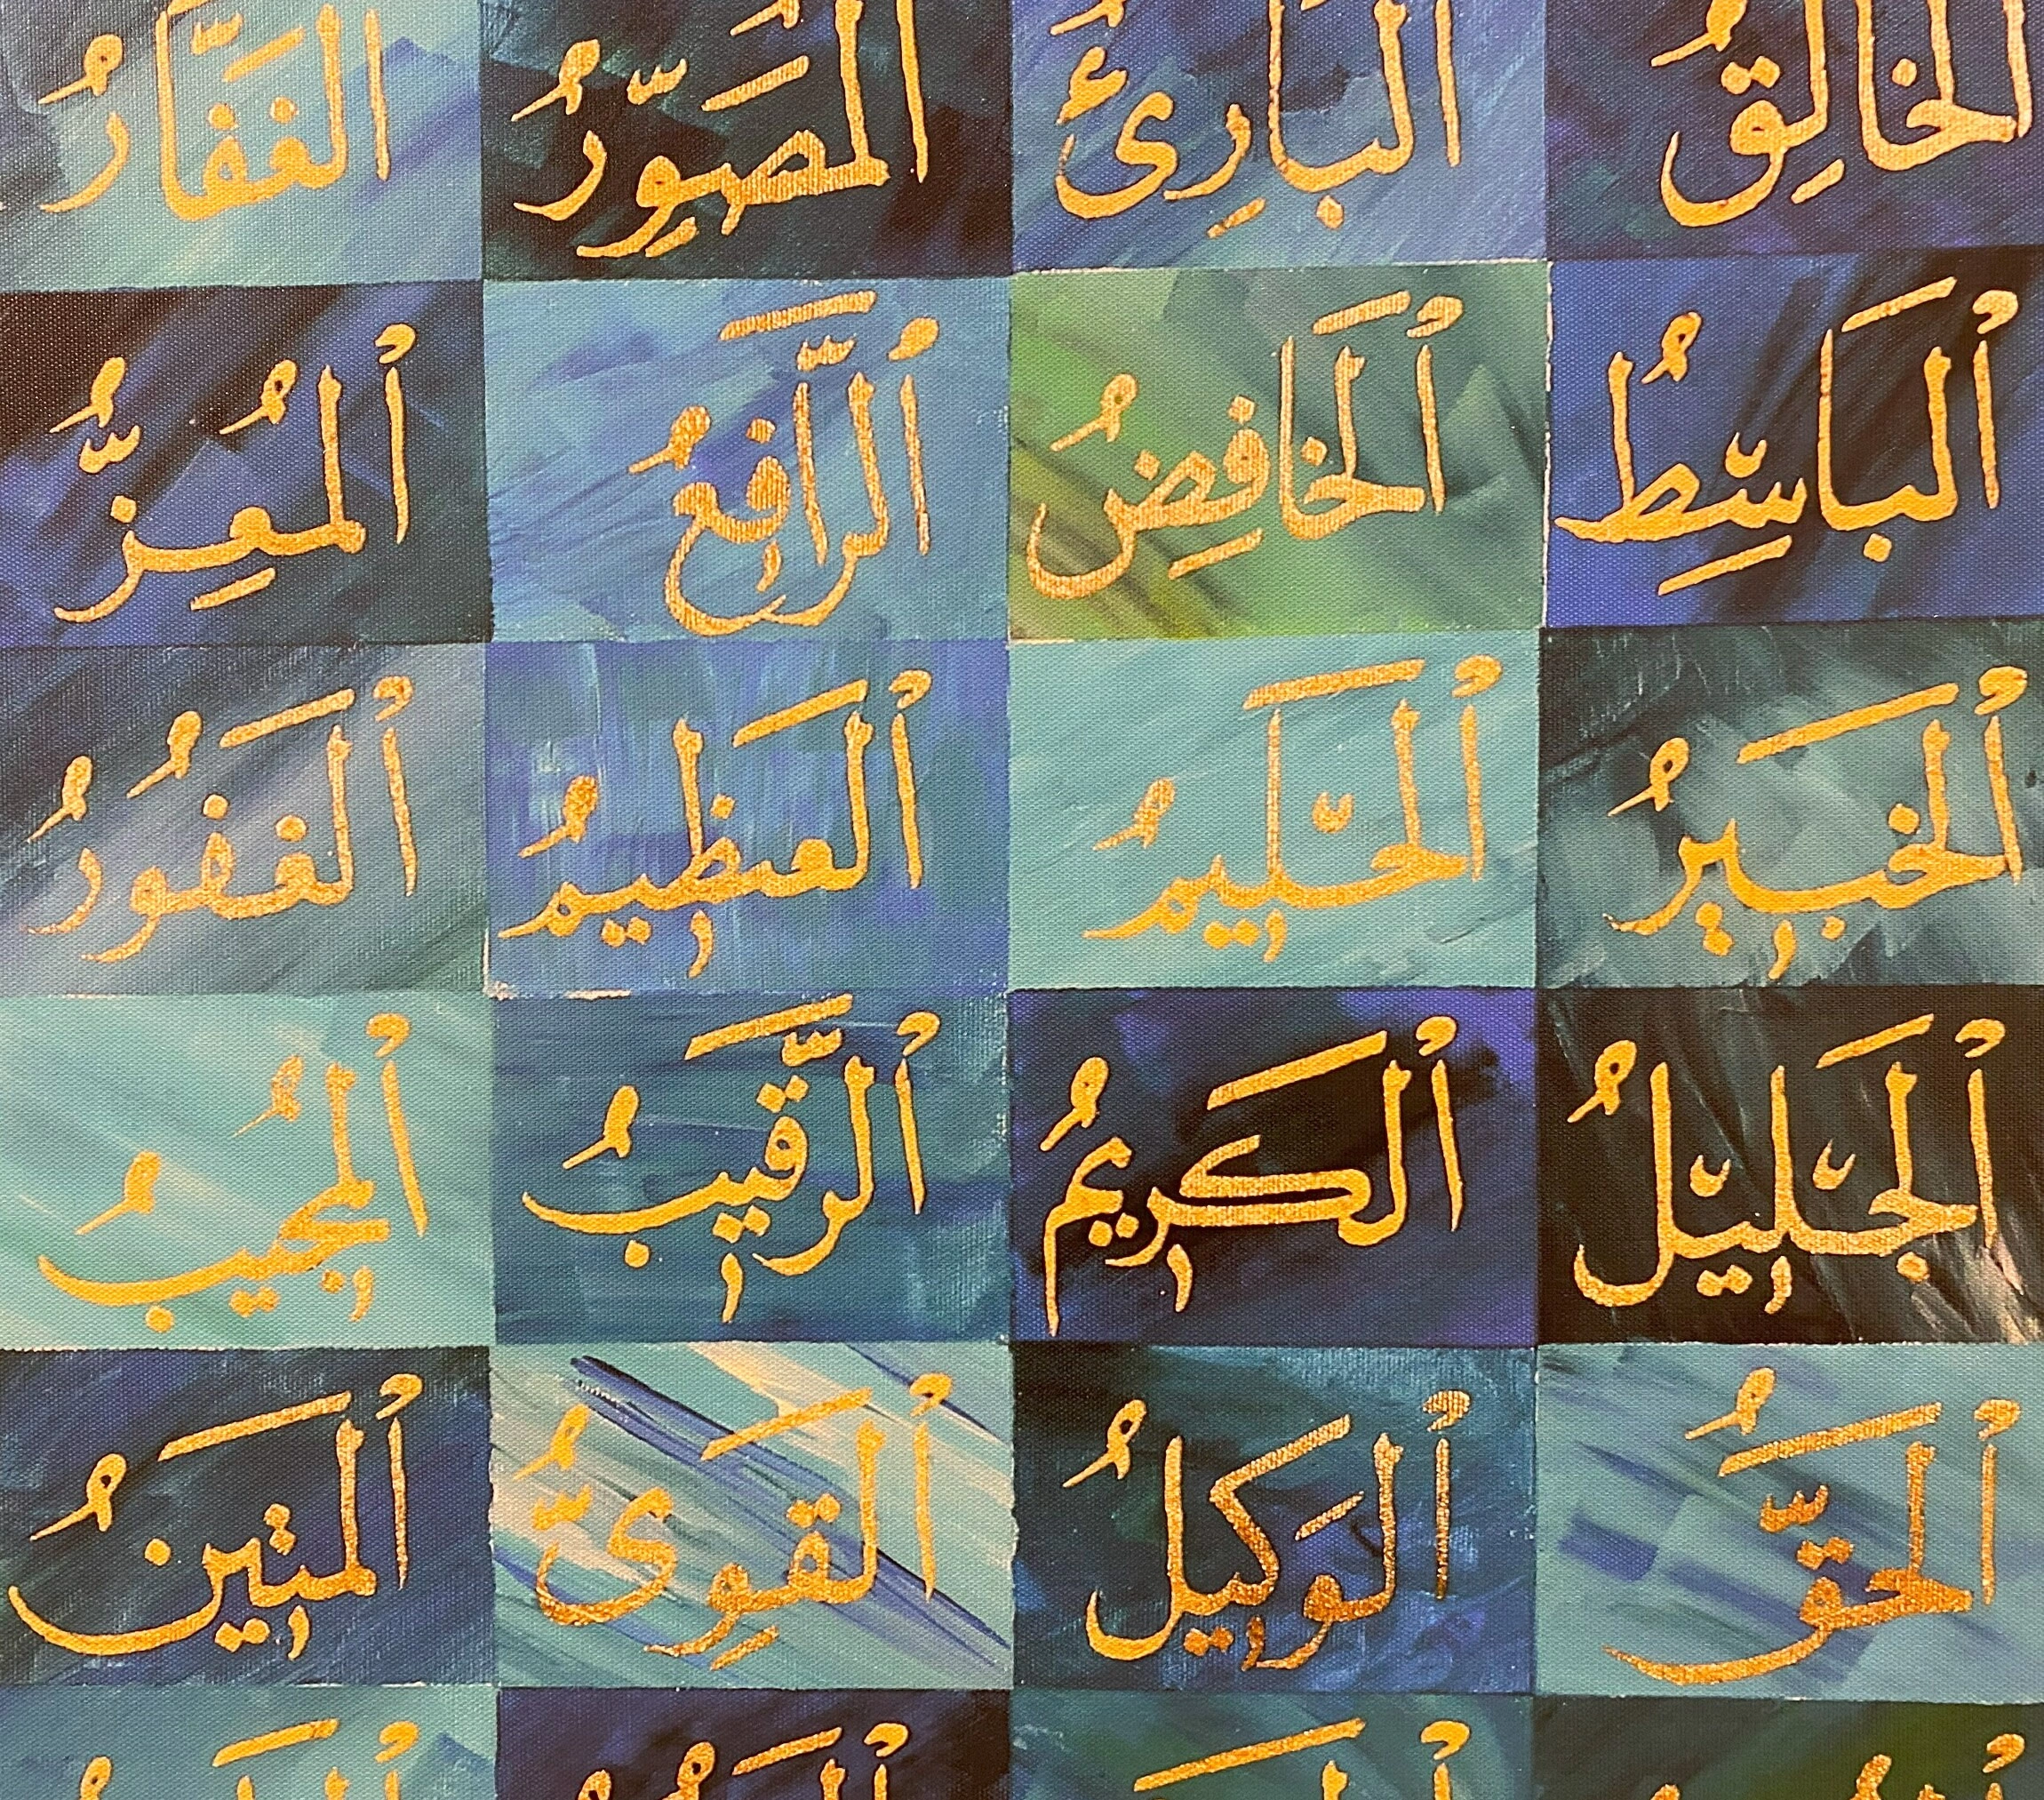 الخَالِقُ البَارِئُ المُصَوِّرُ الغَفَّارُ
أَلبَاسِطُ أَلخَافِضُ أَلرَّافِعُ أَلمُعِزُّ
أَلخَبِيرُ أَلحَلِيمُ أَلعَظِيمُ أَلغَفُورُ
أَلجَلِيلُ أَلكَرِيمُ أَلرَّقِيبُ أَلمُجِيبُ
أَلحَقُّ أَلوَكِيلُ أَلقَوِىُّ أَلمَتِينُ